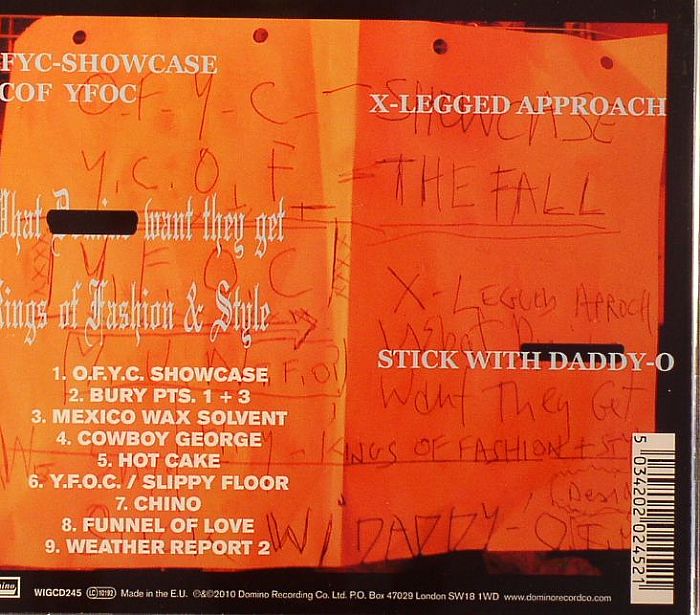 FYC-SHOWCASE
COF YFOC
X-LEGGED APPROACH
O.F.Y.C. - SHOWCASE
Y.C.O.F = THE FALL
What want they get
Kings of Fashion & Style
Y F O C
X-LEGGED APROCH
STICK WITH DADDY-O
What D
Want They Get
KINGS OF FASHION + ST
W/ DADDY-O
1. O.F.Y.C. SHOWCASE
2. BURY PTS. 1 + 3
3. MEXICO WAX SOLVENT
4. COWBOY GEORGE
5. HOT CAKE
6. Y.F.O.C. / SLIPPY FLOOR
7. CHINO
8. FUNNEL OF LOVE
9. WEATHER REPORT 2
5 034202 024521
WIGCD245 LC 10192 Made in the E.U. ℗&©2010 Domino Recording Co. Ltd. P.O. Box 47029 London SW18 1WD www.dominorecordco.com